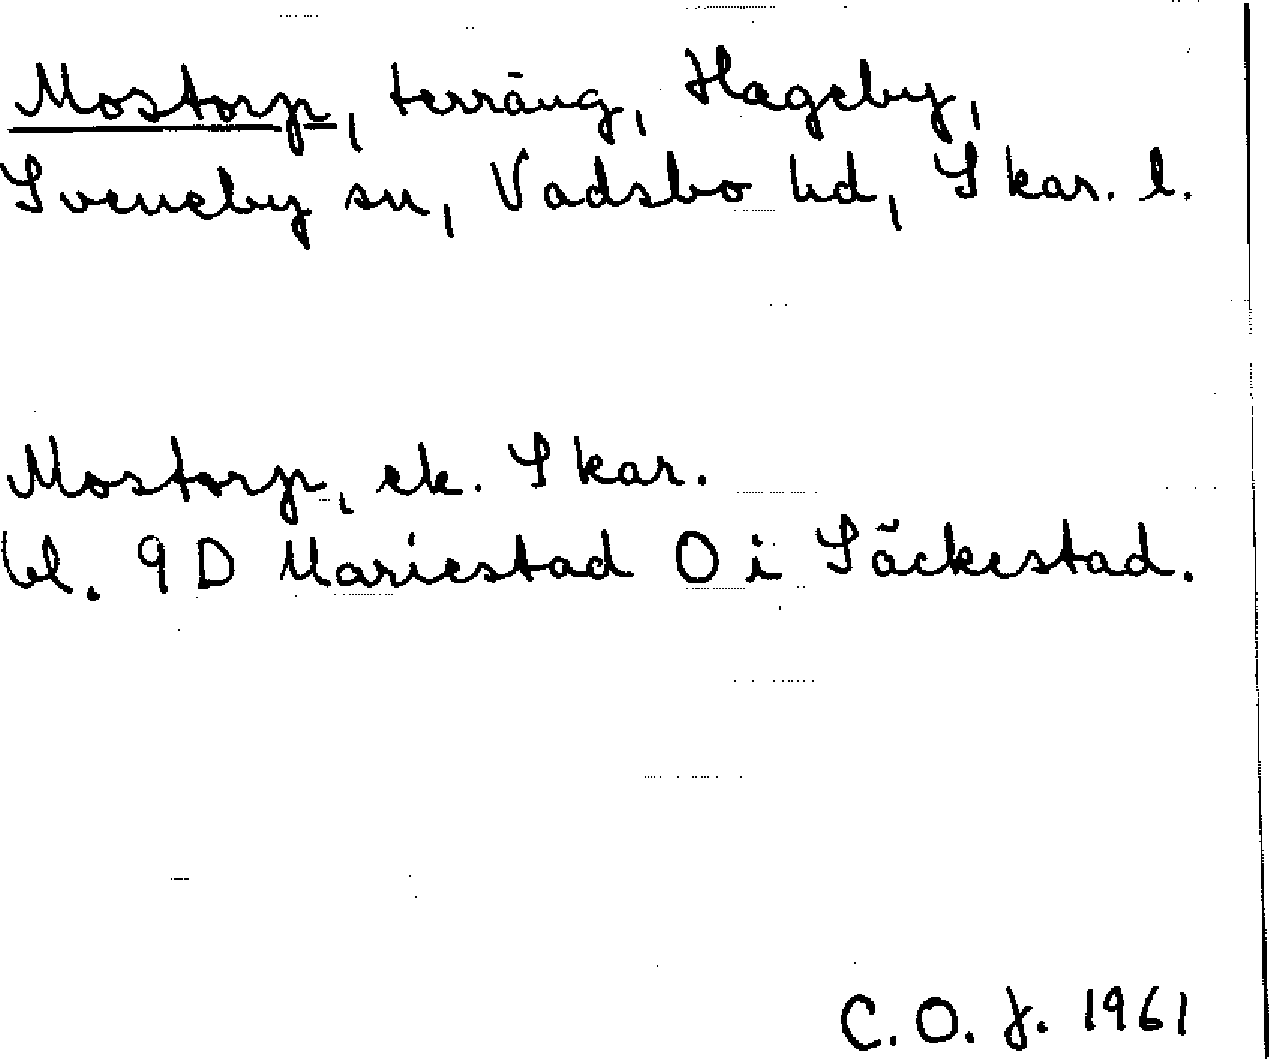 Mostorp, terräng, Hageby,
Sveneby sn, Vadsbo hd, Skar. l.
Mostorp, ek. Skar.
bl. 9 D Mariestad O i Säckestad.
C. O. J. 1961